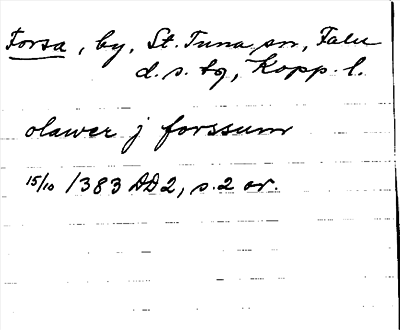 Forsa, by, St. Tuna sn, Falu
d. s. tg, Kopp. l.
olawer j forssum
15/10 1383 DD2, s. 2 or.